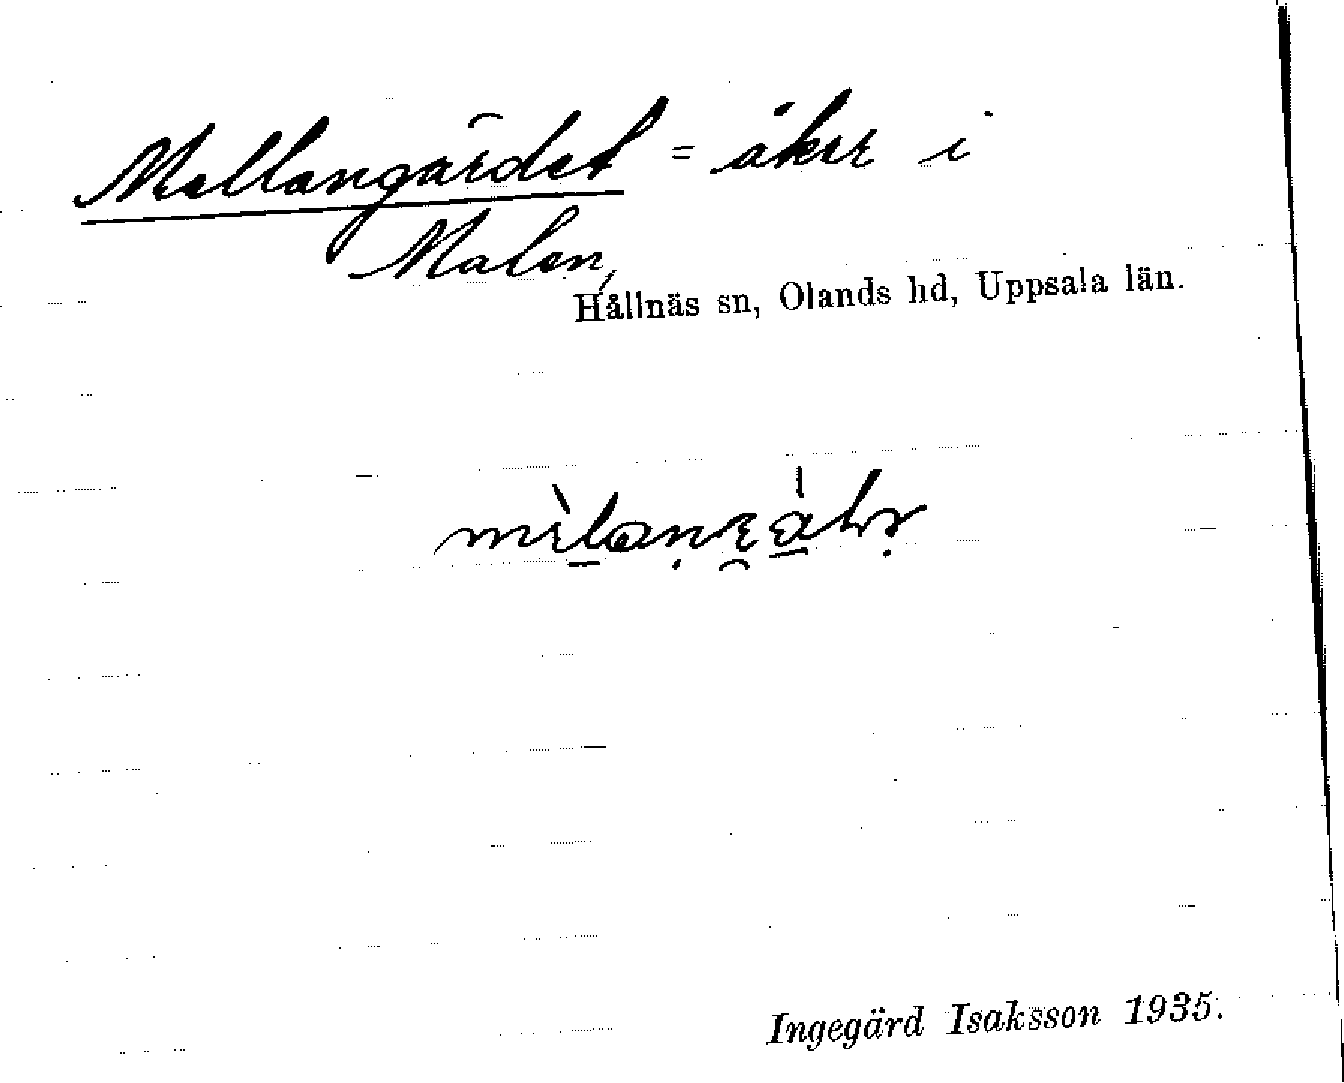 Mellangärdet = åker i
Malen,
Hållnäs sn, Olands hd, Uppsala län.
Ingegärd Isaksson 1935.